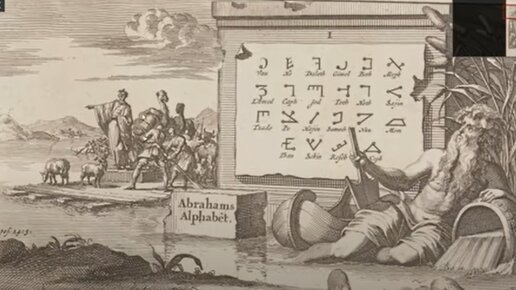 I
Vau He Daleth Gimel Beth Aleph
Lamed Caph Jod Teth Heth Sajin
Tsade Pe Hajin Samech Nun Mem
Thau Schin Resch Coph
Abrahams
Alphabêt.